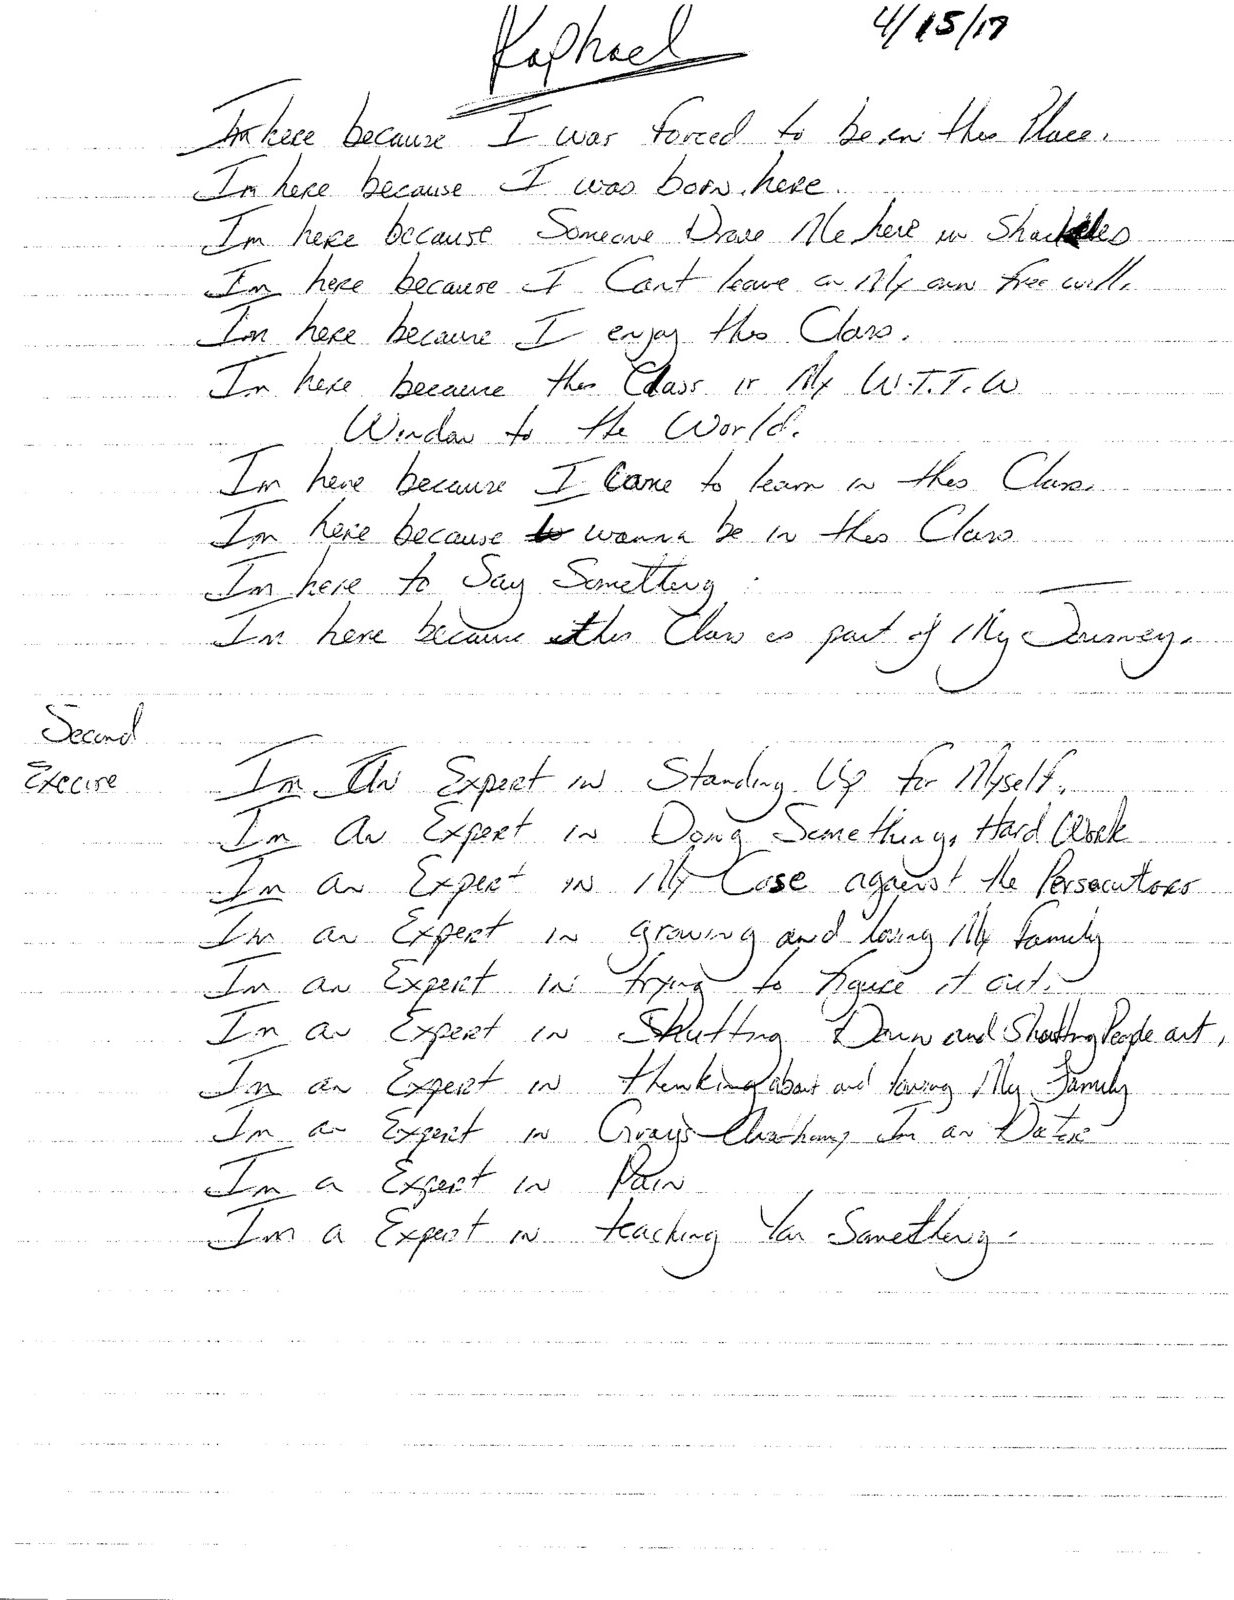 Raphael
4/15/17
Im here because I was forced to be in this Place.
Im here because I was born here.
Im here because Someone Drove Me here in Shackles
Im here because I Cant leave on My own free will.
Im here because I enjoy this Class.
Im here because this Class is My W.T.T.W
Window to the World.
Im here because I Came to learn in this Class.
Im here because to wanna be in this Class
Im here to Say Something
Im here because this Class is part of My Journey.
Second
Im An Expert in Standing Up for Myself.
Im An Expert in Doing Something, Hard Work
Im an Expert in My Case against the Persecutors
Im an Expert in growing and loving My family
Im an Expert in trying to figure it out.
Im an Expert in Shutting Down and Shutting People out,
Im an Expert in thinking about and loving My Family
Im an Expert in Im an
Im a Expert in Pain
Im a Expert in teaching You Something.